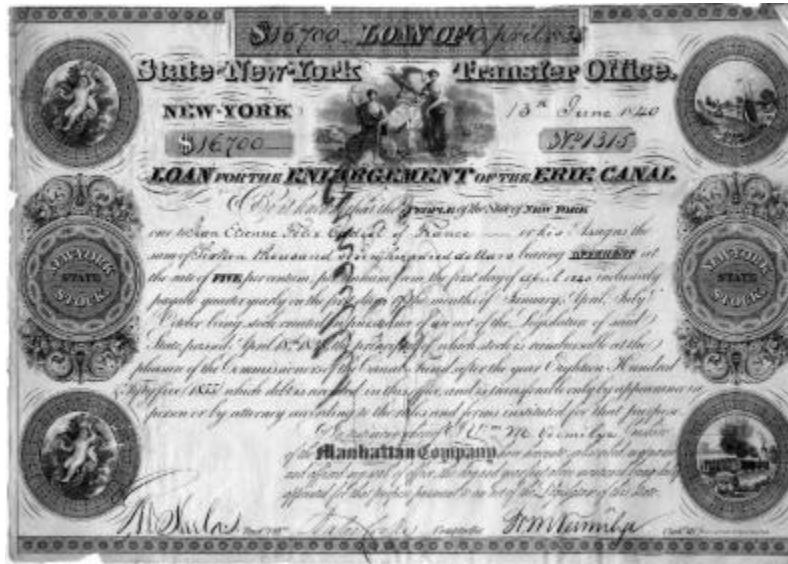 $16700 LOAN OF April 1838
State-New-York Transfer Office.
NEW-YORK 13th June 1840
$16700 No 1315
LOAN FOR THE ENLARGEMENT OF THE ERIE CANAL
NEW-YORK STATE STOCK
NEW-YORK STATE STOCK
Be it known that the PEOPLE of the State of NEW YORK
owe to Jean Etienne Felix of France or his Assigns the
sum of Sixteen thousand seven hundred dollars bearing INTEREST at
the rate of FIVE per centum per annum from the first day of April 1840 inclusively
payable quarter yearly on the first days of the months of January, April, July
October being stock created in pursuance of an act of the Legislature of said
State, passed April 18th the principal of which stock is reimbursable at the
pleasure of the Commissioners of the Canal Fund, after the year Eighteen Hundred
Fifty five 1855 which debt is recorded in this office, and is transferable only by appearance in
person or by attorney according to the rules and forms instituted for that purpose
Cashier
of the
Manhattan Company
and affixed my seal of office the day and year first above mentioned being duly
appointed for that purpose pursuant to an act of the Legislature of this State.
Comptroller